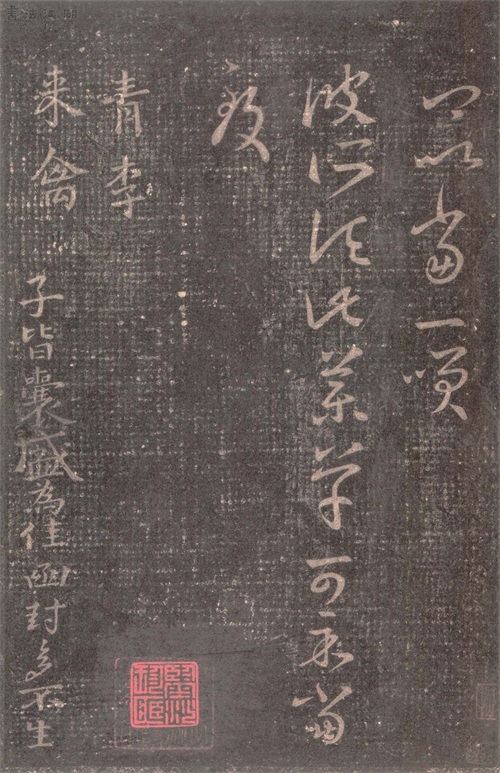 之以當一笑
彼所須此藥草可示當
致
青李
来禽
子皆囊盛為佳函封多不生